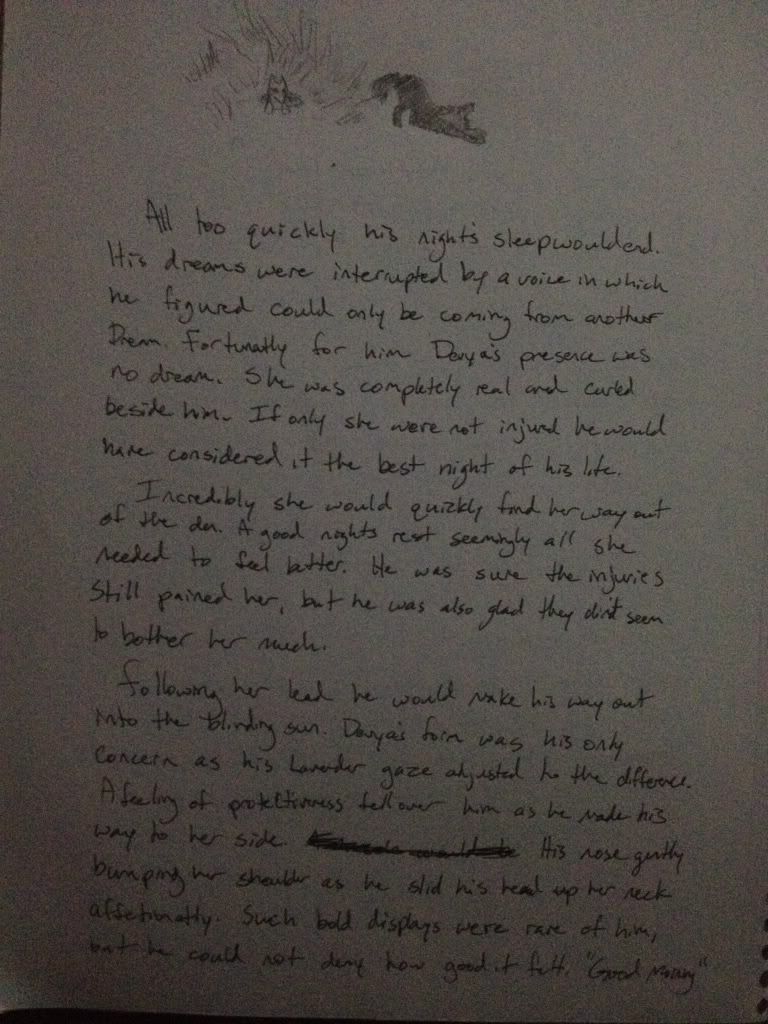 All too quickly his nights sleep would end.
His dreams were interrupted by a voice in which
he figured could only be coming from another
Dream. Fortunatly for him Davya's presence was
no dream. She was completely real and curled
beside him. If only she were not injured he would
have considered it the best night of his life.
Incredibly she would quickly find her way out
of the den. A good nights rest seemingly all she
needed to feel better. He was sure the injuries
Still pained her, but he was also glad they did't seem
to bother her much.
Following her lead he would make his way out
into the blinding sun. Davya's form was his only
Concern as his Lavender gaze adjusted to the difference.
A feeling of protectivness fell over him as he made his
way to her side. His nose gently
bumping her shoulder as he slid his head up her neck
affetionatly. Such bold displays were rare of him,
but he could not deny how good it felt. "Good Morning"